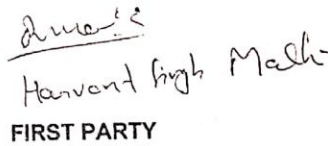 Harvant Singh Malhi
FIRST PARTY